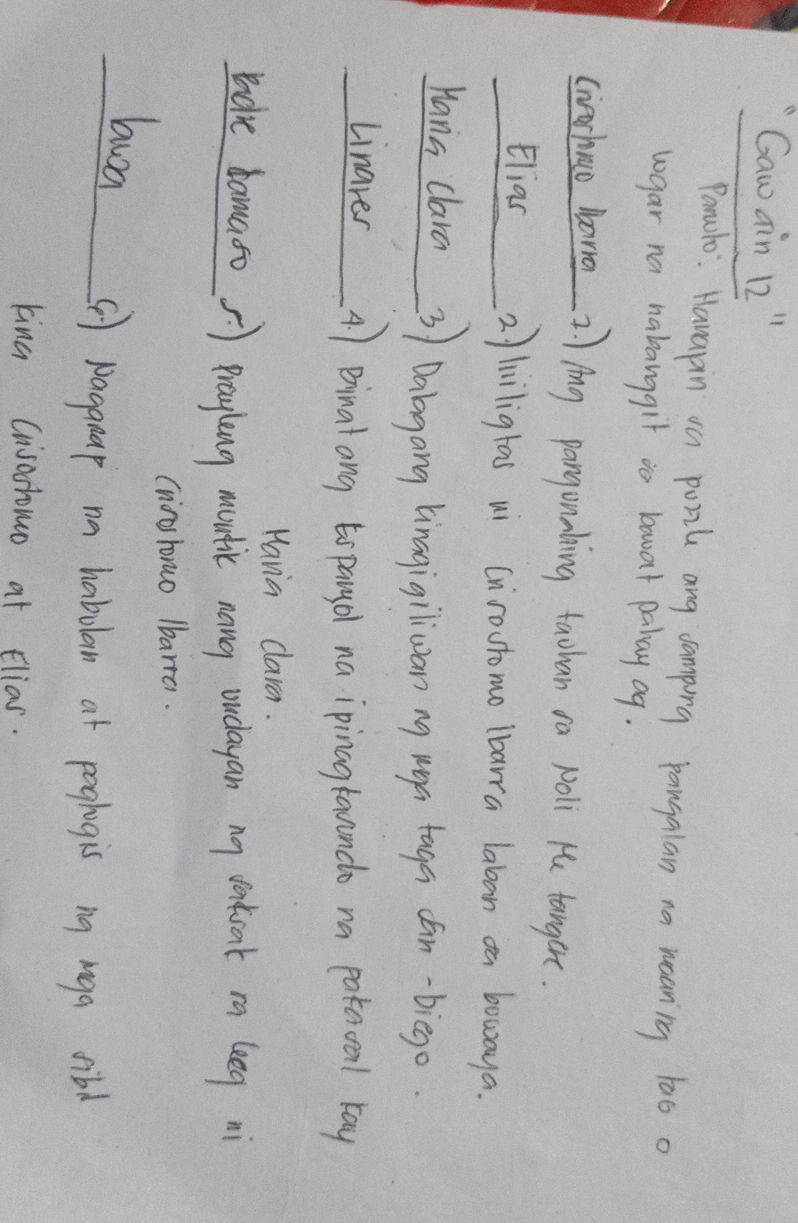 "Gawain 12"
Panuto: Hanapin sa puzzle ang sampung pangalan na maaring tao o
lugar na nabanggit sa bawat pahayag.
Crisostomo Ibarra 1.) Ang pangunahing tauhan sa Noli Me tangere.
Elias 2.) Iniligtas ni Crisostomo Ibarra laban sa buwaya.
Maria Clara 3.) Dalagang kinagigiliwan ng mga taga San-Diego.
Linares 4.) Binatang Espanyol na ipinagkasundo na pakasal kay
Maria Clara.
Padre Damaso 5.) Prayleng muntik nang undayan ng saksak sa leeg ni
Crisostomo Ibarra.
6.) Naganap na habulan at pagtugis ng mga sibil
kina Crisostomo at Elias.